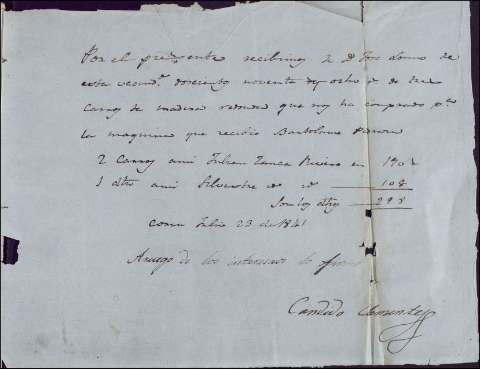 Por el preste recibimos de Dn Jose Lomo de
esta vecindd docientos noventa y ocho rs de tres
carros de madera redonda que nos ha comprado pa
la maquina que recibio Bartolome
2 Carros ami Julian Rivero en 190 r
1 otro ami Silvestre id id 108
Son los dhos 298
Julio 23 de 1841
Aruego de los interesados lo firmo
Candido Clemente